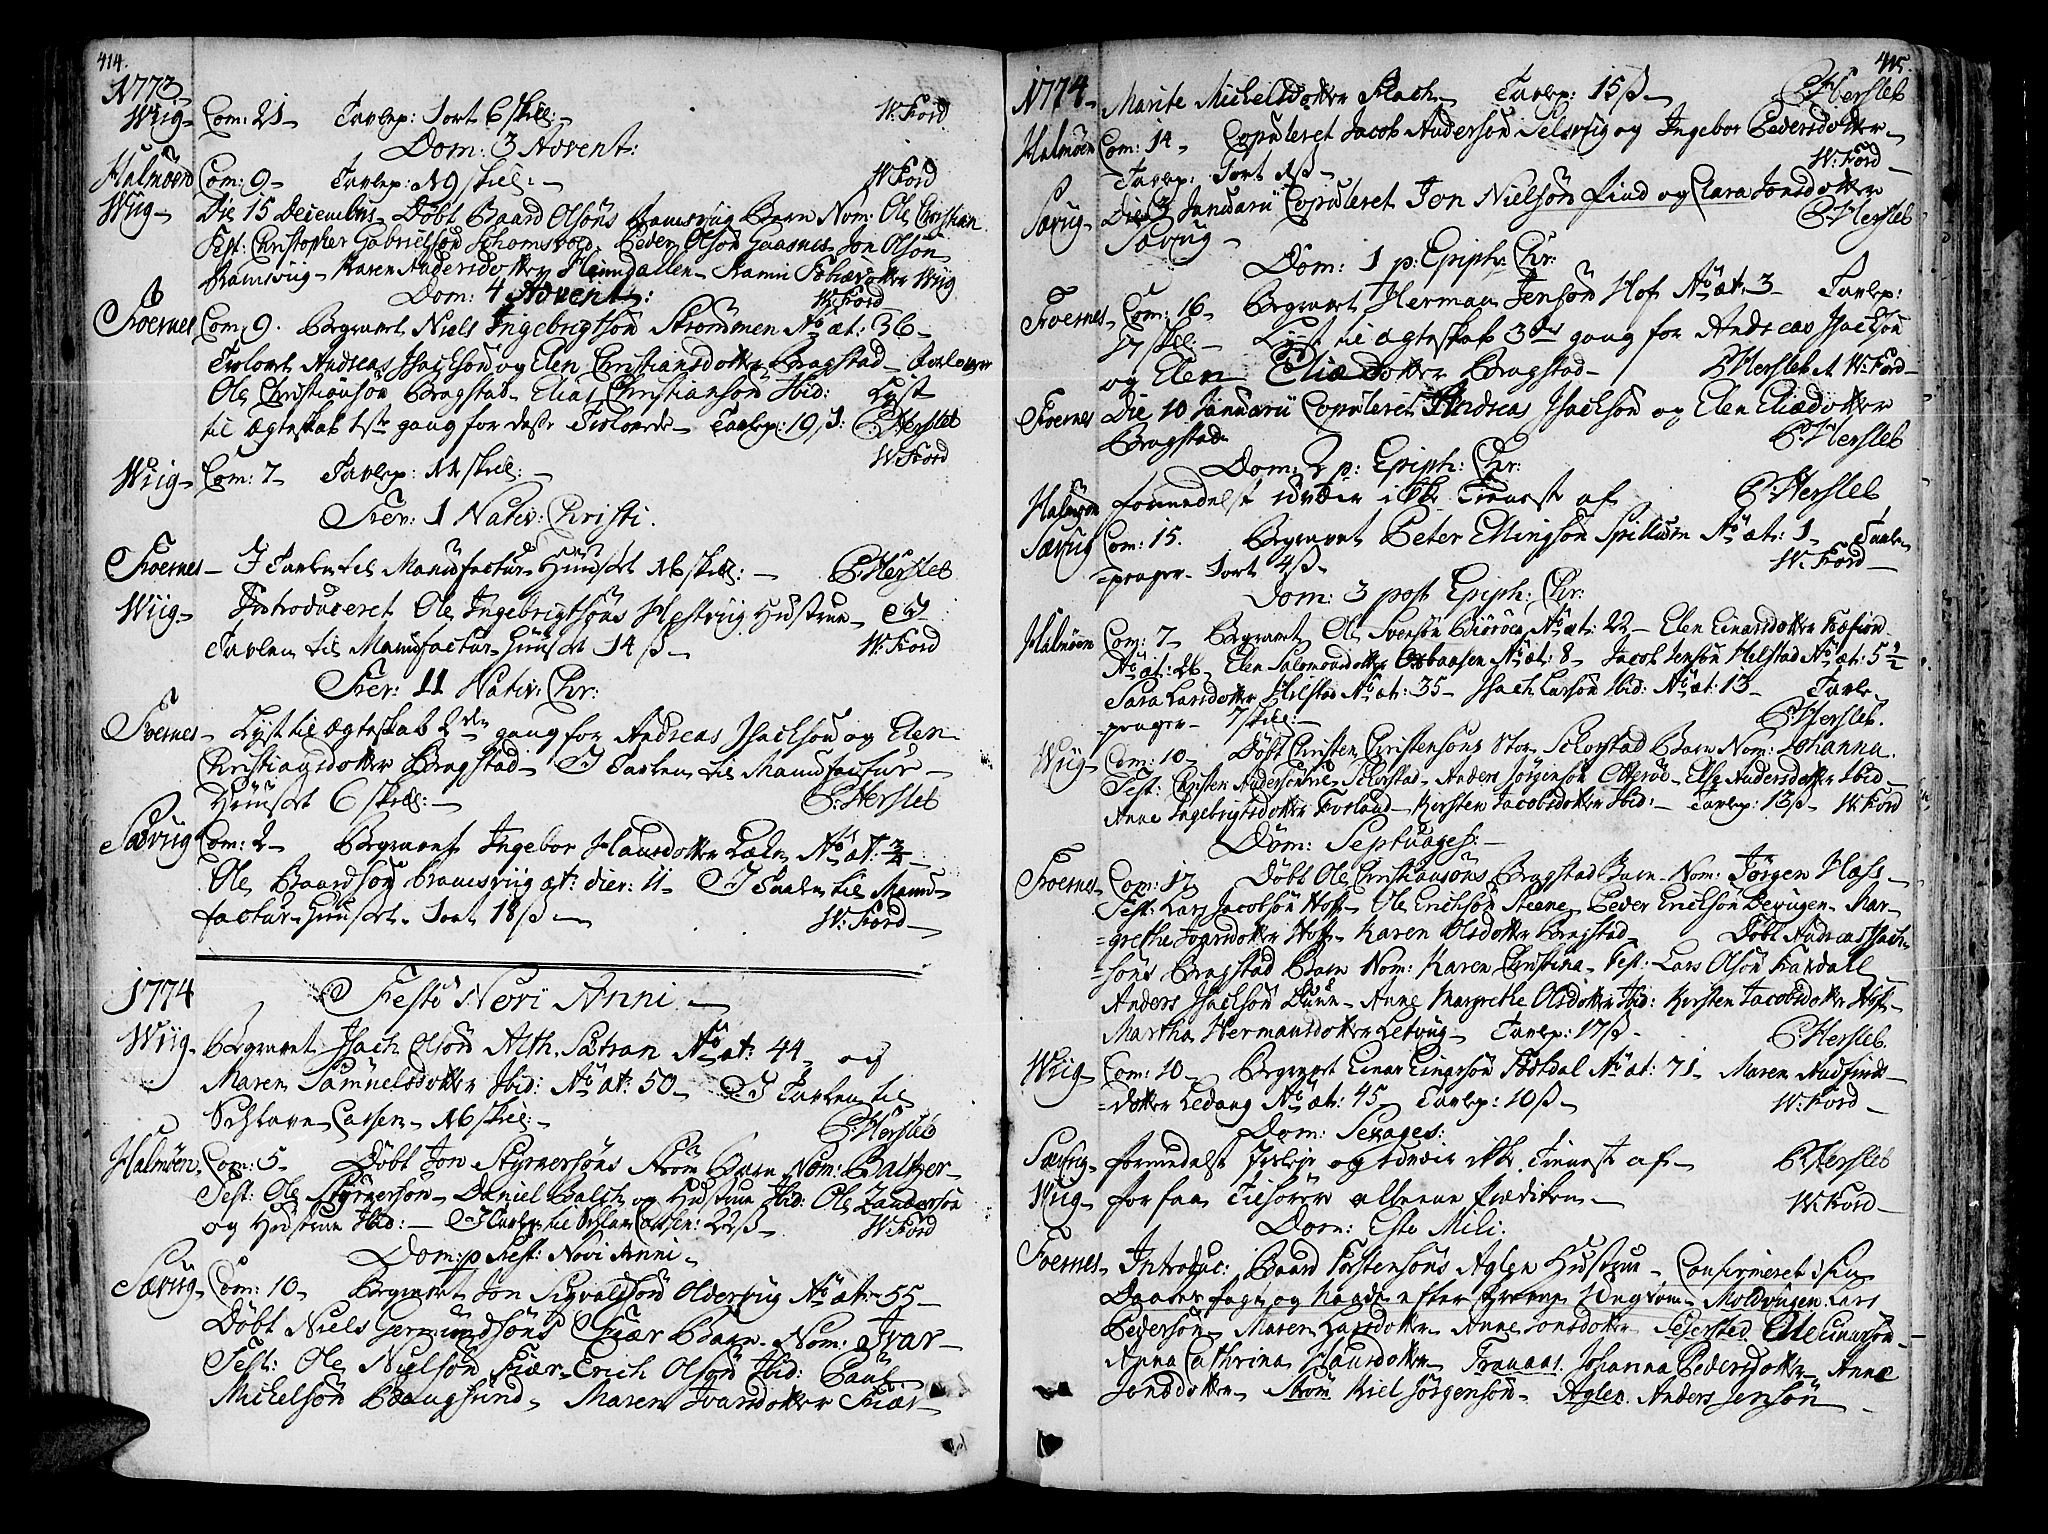 414.
1773
Wiig- Com: 21- Tavlep: 1 ort 6 skil:- W: Ford
Dom: 3 Advent:
Halmöen Com: 9- Tavlep: 19 skil:- W: Ford
Wiig- Die 15 Decembris- Döbt Baard Olsöns Ramsviig Barn Nom: Ole Christian
Test: Christopher Gabrielsön Schomsvold- Peder Olsön Gaasnes- Jon Olsön
Ramsviig- Karen Andersdotter Heimdallen- Karen Tobiædotter Wiig
Dom: 4 Advent: W: Ford
Foernes Com: 9. Begravet Niels Ingebrigtsön Strömmen Aõ æt: 36-
Troloret Andreas Isachsön og Elen Christiansdotter Bragstad- Forlovere
Ole Christiansön Bragstad- Elias Christiansön Ibid: Lyst
til ægteskab 1ste gang for disse Trolovede- Tavlep: 19 s: C: Hersleb
Wiig- Com: 7- Tavlep: 11 skil:- W: Ford
Fer: 1 Nativ: Christi.
Foernes- I Tavlen til Manufactur Huuset 16 skil:- C: Hersleb
Wiig- Introduceret Ole Ingebrigtsöns Hestviig Hustrue- I
Tavlen til Manufactur-Huuset 14 s- W: Ford
Fer: 11 Nativ: Chr:
Foernes- Lyst til ægteskab 2den gang for Andreas Isachsön og Elen
Christiansdotter Bragstad- I Tavlen til Manufactur-
Huuset 6 skil:- C: Hersleb
Sævug Com: 2- Begravet Ingebor Hansdotter Aõ æt: 3/4-
Ole Baardsön Bamsviig æt: dier: 11- I Tavlen til Manu-
factur-Huuset- 1 ort 18 s- W: Ford-
1774 Festo Novi Anni-
Wiig- Begravet Isach Olsön Alth. Sætran Aõ æt: 44- og
Maren Samuelsdotter Ibid: Aõ æt: 50- I Tavlen til
Sclaven Cassen- 16 skil:- C: Hersleb
Halmöen- Com: 5- Döbt Jon Styrnersöns Ström Barn Nom: Baltzer-
Test: Ole Styrnersön- Daniel Balch og Hustrue Ibid: Ole Zandersön
og Hustrue Ibid:- I Tavlen til Sclav Cassen: 22 s- W: Ford
Dom: p Fest: Novi Anni-
Sævug- Com: 10- Begravet Jon Sigvaldsön Oldervug Aõ æt- 55-
Döbt Niels Germundsöns Fiær Barn- Nom: Ivar-
Test: Ole Nielsön Fiær- Erich Olsön Ibid: Paul
Michelsön Bangsund- Maren Ivarsdotter Fiær-
415.
1774- Marite Michelsdotter Flach- Tavlep: 15 s- C: Hersleb
Halmöen Com: 14- Copuleret Jacob Andersön Selsviig og Ingebor Pedersdotter-
Tavlep: 1 ort 1 s- W: Ford-
Sævug- Die 3 Januarii Copuleret Jon Nielsön Lund og Clara Jonsdotter
Sævug- C: Hersleb
Dom: 1 p: Epiph: Chr:
Foernes- Com: 16- Begravet Herman Jensön Hof Aõ æt: 3- Tavlep:
17 skil:- Lyst til ægteskab 3die gang for Andreas Isachsön
og Elen Eliædotter Bragstad- C: Hersleb et W: Ford-
Foernes Die 10 Januarii Copuleret Andreas Isachsön og Elen Eliædotter
Bragstad- C: Hersleb
Dom: 2 p: Epiph: Chr:
Halmöen formedelst udveir ikke Tieneste af C: Hersleb
Sævug Com: 15. Begravet Peter Ellingsön Spillum Aõ æt: 1- Tavle-
=penger- 1 ort 4 s- W: Ford-
Dom: 3 post Epiph: Chr:
Halmöen Com: 7- Begravet Ole Svensön Biöröen Aõ æt: 22- Elen Einarsdotter
Aõ æt: 26- Elen Salmonsdotter Aõ æt: 8- Jacob Jensön Hilstad Aõ æt: 5 1/2
Sara Larsdotter Hilstad Aõ æt: 35- Isach Larsön Ibid: Aõ æt: 13- Tavle-
penger- 7 skil:- C: Hersleb.
Wiig- Com: 10- Döbt Christen Christensöns Stor Schorstad Barn Nom: Johanna.
Test: Christen Andersön Schorstad- Anders Jörgensön Otteröe- Else Andersdotter Ibid-
Anne Ingebrigtsdotter Forland- Kirsten Jacobsdotter Ibid:- Tavlep: 13 s- W: Ford
Dom: Septuages:-
Foernes- Com: 12 Döbt Ole Christiansöns Bragstad Barn- Nom: Jörgen Hass-
Test: Lars Jacobsön Hoff- Ole Erichsön Steene- Peder Erichsön Devigen- Mar-
=grethe Ivarsdotter Hoff- Karen Olsdotter Bragstad- Döbt Andreas Isach-
=söns Bragstad Barn Nom: Karen Christina- Test: Lars Olsön Fandall-
Anders Isachsön Duun- Anne Margrethe Olsdotter Ibid: Kirsten Jacobsdotter Hof-
Martha Hermansdotter Ledviig- Tavlep: 17 s- C: Hersleb.
Wiig- Com: 10- Begravet Einar Einarsön Födtdal Aõ æt: 71- Maren Audfind-
=dotter Ledang Aõ æt: 45- Tavlep: 10 s- W: Ford-
Dom: Sexages:
Sævig- formedelst og udveir ikke Tieneste af- C: Hersleb
Wiig- for faa Tilhörere alleene Prædiken- W: Ford-
Dom: Esto Mihi.
Foernes- Introduc: Baard Torstensöns Aglen Hustrue- Confirmeret i sin
Daabes Pagt og Naade efter Ungdom- Moldvigen. Lars
Pedersön- Maren Larsdotter- Anne Jonsdotter- Seierstad. Ole Einarsön
Anna Cathrina Hansdotter- Tranaas. Johanna Pedersdotter- Anne
Jonsdotter- Ström Niel Jörgensön- Aglen. Anders Jensön